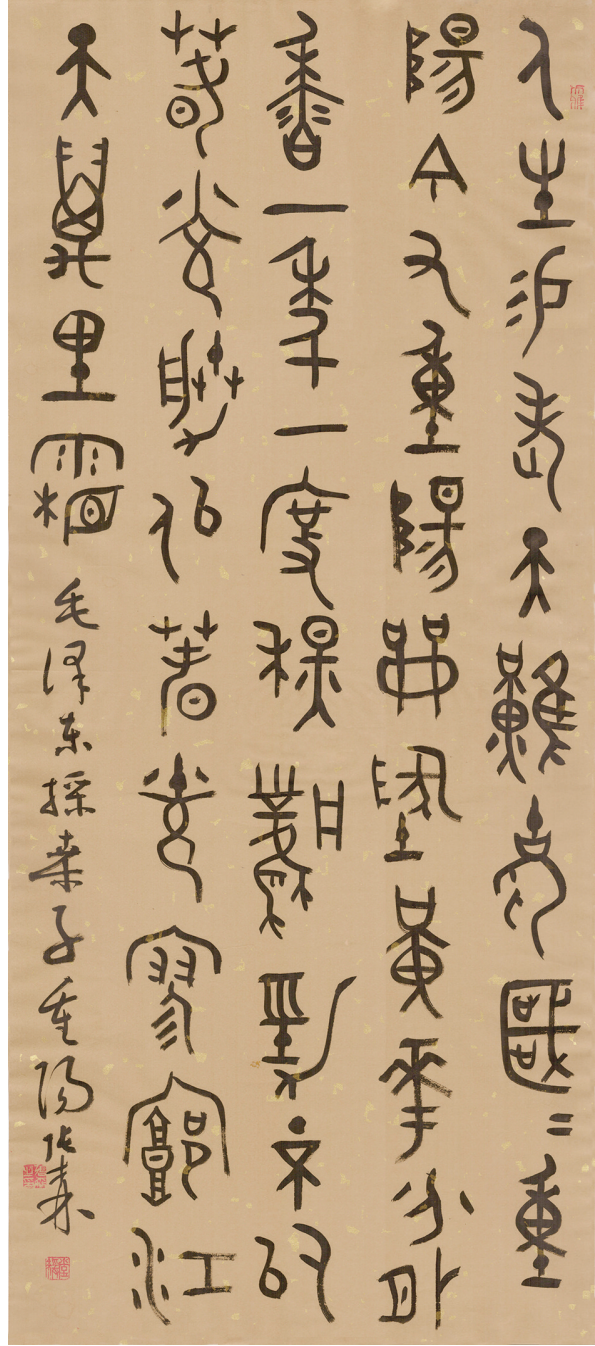 人生易老天難老歲=重
陽今又重陽戰地黃華分外
香一年一度秋風勁不似
春光勝似春光寥廓江
天萬里霜 毛泽东採桑子重陽